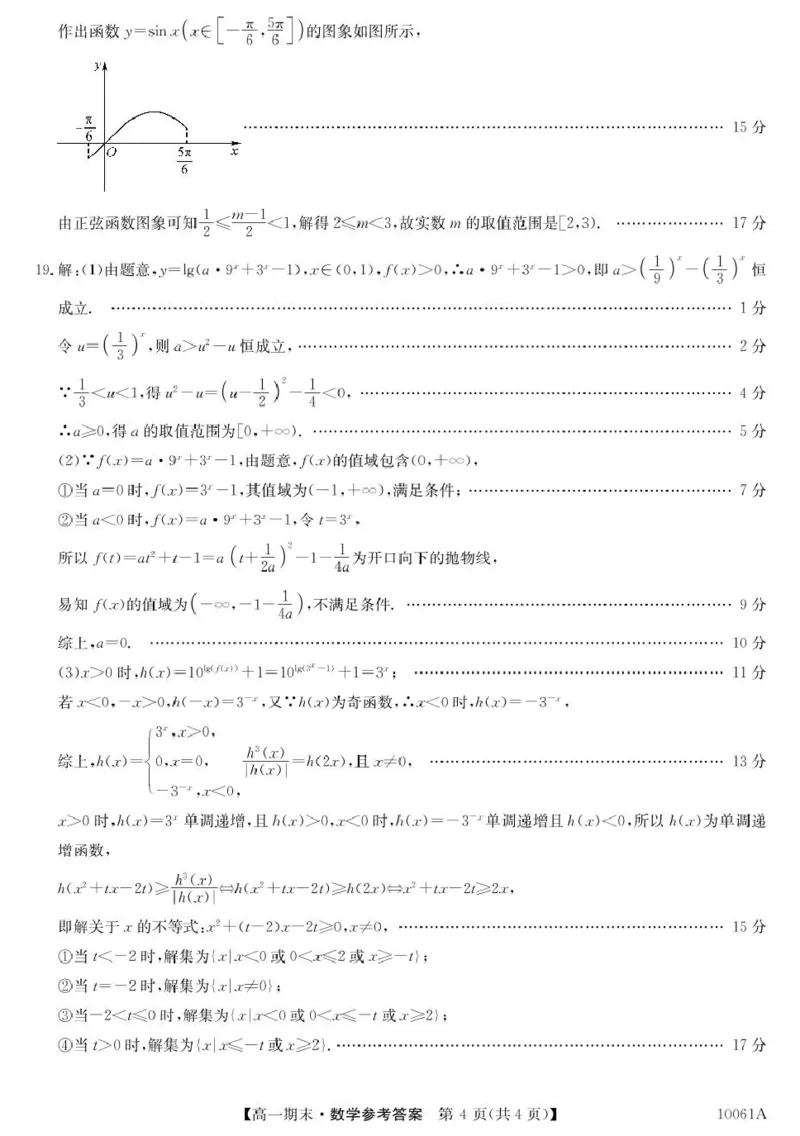 作出函数 y=sin x(x∈[-π/6, 5π/6])的图象如图所示,
y
-π/6
O
5π/6
x
…… 15 分
由正弦函数图象可知 1/2≤(m-1)/2<1,解得 2≤m<3,故实数 m 的取值范围是[2,3). …… 17 分
19. 解:(1)由题意,y=lg(a·9ˣ+3ˣ-1),x∈(0,1),f(x)>0,∴a·9ˣ+3ˣ-1>0,即 a>(1/9)ˣ-(1/3)ˣ 恒
成立. …… 1 分
令 u=(1/3)ˣ,则 a>u²-u 恒成立, …… 2 分
∵1/3<u<1,得 u²-u=(u-1/2)²-1/4<0, …… 4 分
∴a≥0,得 a 的取值范围为[0,+∞). …… 5 分
(2)∵f(x)=a·9ˣ+3ˣ-1,由题意,f(x)的值域包含(0,+∞),
①当 a=0 时,f(x)=3ˣ-1,其值域为(-1,+∞),满足条件; …… 7 分
②当 a<0 时,f(x)=a·9ˣ+3ˣ-1,令 t=3ˣ,
所以 f(t)=at²+t-1=a(t+1/2a)²-1-1/4a 为开口向下的抛物线,
易知 f(x)的值域为(-∞,-1-1/4a),不满足条件. …… 9 分
综上,a=0. …… 10 分
(3)x>0 时,h(x)=10^{lg(f(x))}+1=10^{lg(3ˣ-1)}+1=3ˣ; …… 11 分
若 x<0,-x>0,h(-x)=3⁻ˣ,又∵h(x)为奇函数,∴x<0 时,h(x)=-3⁻ˣ,
综上,h(x)={3ˣ,x>0, 0,x=0, -3⁻ˣ,x<0, h³(x)/|h(x)|=h(2x),且 x≠0, …… 13 分
x>0 时,h(x)=3ˣ 单调递增,且 h(x)>0,x<0 时,h(x)=-3⁻ˣ 单调递增且 h(x)<0,所以 h(x)为单调递
增函数,
h(x²+tx-2t)≥h³(x)/|h(x)|⇔h(x²+tx-2t)≥h(2x)⇔x²+tx-2t≥2x,
即解关于 x 的不等式:x²+(t-2)x-2t≥0,x≠0, …… 15 分
①当 t<-2 时,解集为{x|x<0 或 0<x≤2 或 x≥-t};
②当 t=-2 时,解集为{x|x≠0};
③当-2<t≤0 时,解集为{x|x<0 或 0<x≤-t 或 x≥2};
④当 t>0 时,解集为{x|x≤-t 或 x≥2}. …… 17 分
【高一期末·数学参考答案 第 4 页(共 4 页)】 10061A